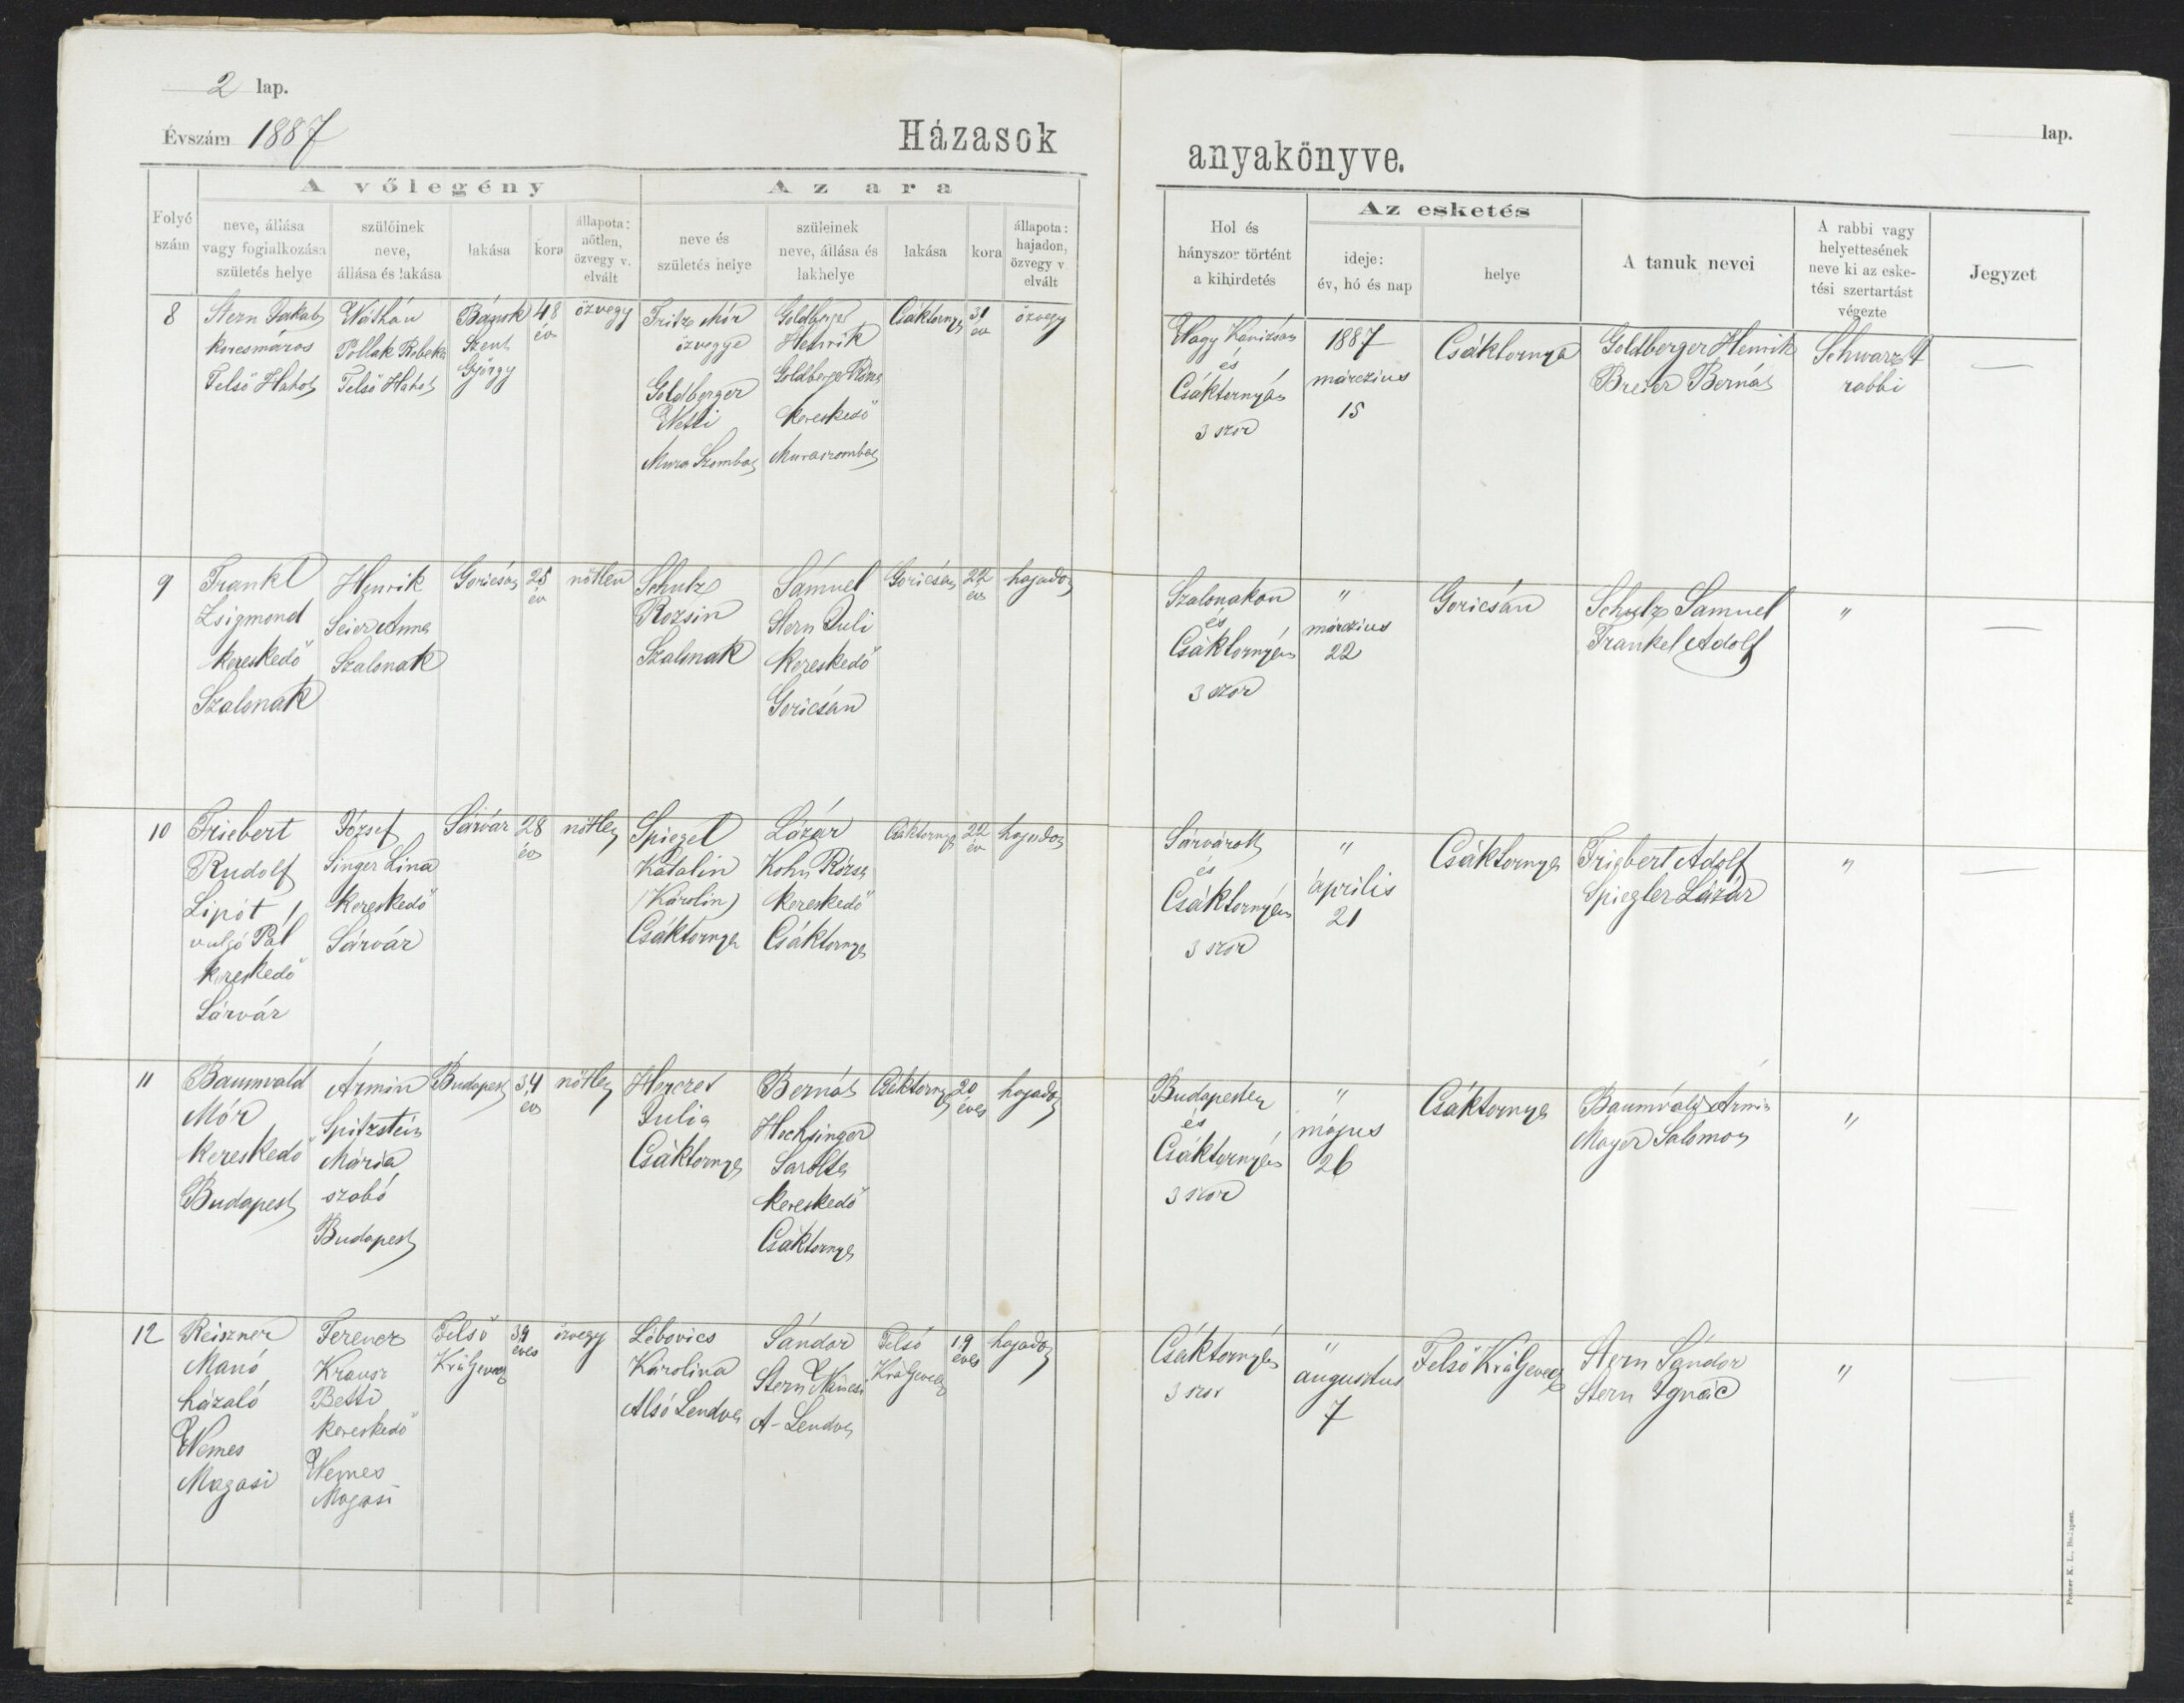 2 lap.
Évszám 1887
Házasok
A vőlegény
Az ara
Folyó szám
neve, állása vagy foglalkozása születés helye
szülőinek neve, állása és lakása
lakása
kora
állapota: nőtlen, özvegy v. elvált
neve és születés helye
szüleinek neve, állása és lakhelye
lakása
kora
állapota: hajadon, özvegy v elvált
8
Stern Jakab
korcsmáros
Felső Hahot
Náthán
Pollak Rebeka
Felső Hahot
Szent
György
48
év
özvegy
Fritz Mór
özvegye
Goldberger
Netti
Mura Szombat
Goldberger
Henrik
Goldberger Róza
kereskedő
Muraszombat
Csáktornya
31
év
özvegy
9
Frankl
Zsigmond
kereskedő
Szalonak
Henrik
Seier Anna
Szalonak
Goricsán
25
év
nőtlen
Schulz
Rozsin
Szalonak
Sámuel
Stern Juli
kereskedő
Goricsán
Goricsán
22
év
hajadon
10
Friebert
Rudolf
Lipót
vulgó Pál
kereskedő
Sárvár
József
Singer Lina
kereskedő
Sárvár
Sárvár
28
év
nőtlen
Spiegel
Katalin
(Károlin)
Csáktornya
Lázár
Kohn Rózsa
kereskedő
Csáktornya
Csáktornya
22
év
hajadon
11
Baumvald
Mór
kereskedő
Budapest
Ármin
Spitzstein
Mária
szabó
Budapest
Budapest
34
év
nőtlen
Herczer
Julia
Csáktornya
Bernát
Hochsinger
Sarolta
kereskedő
Csáktornya
Csáktornya
20
éves
hajadon
12
Reiszner
Manó
házaló
Nemes
Magasi
Ferencz
Krausz
Betti
kereskedő
Nemes
Magasi
Felső
Králjevecz
39
éves
özvegy
Lébovics
Károlina
Alsó Lendva
Sándor
Stern Náncsi
A-Lendva
Felső
Králjevecz
19
éves
hajadon
lap.
anyakönyve.
Hol és hányszor történt a kihirdetés
Az esketés
ideje: év, hó és nap
helye
A tanuk nevei
A rabbi vagy helyettesének neve ki az esketési szertartást végezte
Jegyzet
Nagy Kanizsán
és
Csáktornyán
3 szor
1887
márczius
15
Csáktornya
Goldberger Henrik
Breier Bernát
Schwarz
rabbi
Szalonakon
és
Csáktornyán
3 szor
"
márczius
22
Goricsán
Schulz Samuel
Frankel Adolf
"
Sárvárott
és
Csáktornyán
3 szor
"
április
21
Csáktornya
Friebert Adolf
Spiegler Lázár
"
Budapesten
és
Csáktornyán
3 szor
"
május
26
Csáktornya
Baumváld Ármin
Mayer Salomon
"
Csáktornyán
3 szor
"
augusztus
7
Felső Králjevecz
Stern Sándor
Stern Ignác
"
Posner K. L., Budapest.